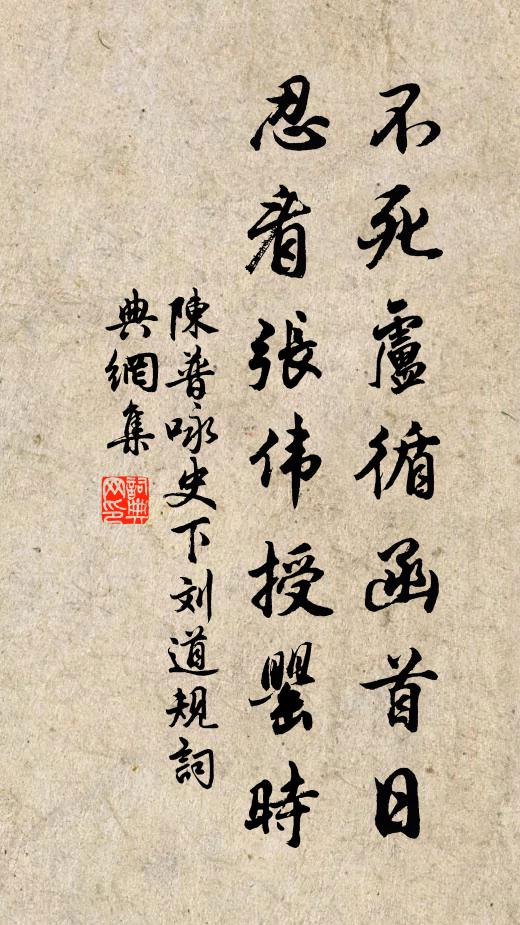 不死盧循函首日
忍看張伟授罌時
陳普咏史下刘道規詞
典網集
詞典
网印